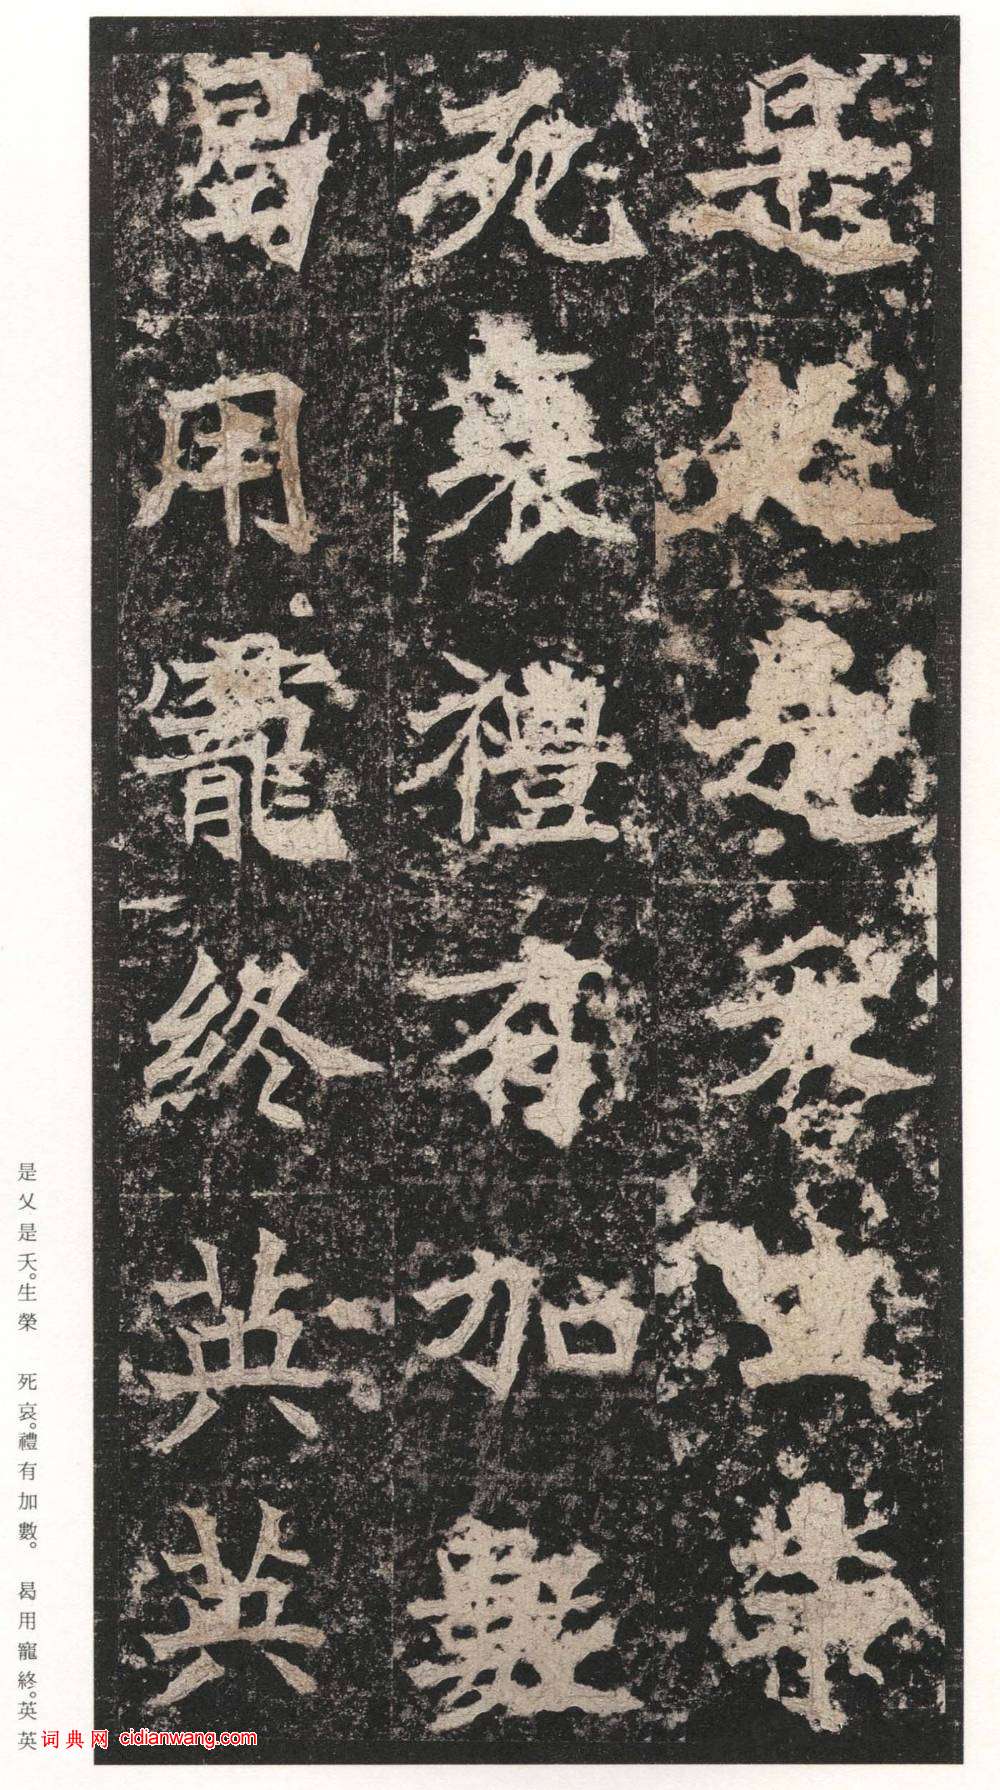 是乂是夭生榮
死哀禮有加數
曷用寵終英英
是乂是夭。生榮 死哀。禮有加數。 曷用寵終。英英
词典网 cidianwang.com